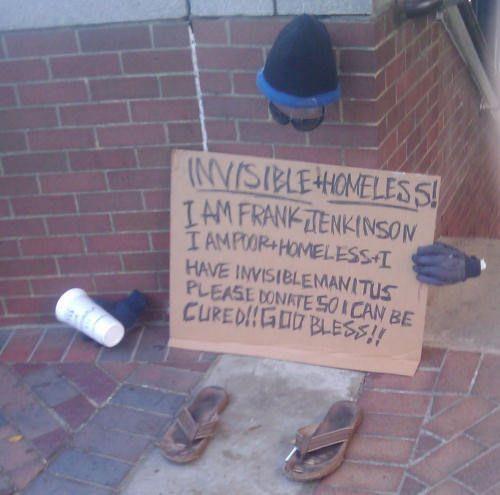 INVISIBLE+HOMELESS!
I AM FRANK JENKINSON
I AM POOR+HOMELESS+I
HAVE INVISIBLEMANITUS
PLEASE DONATE SO I CAN BE
CURED!! GOD BLESS!!